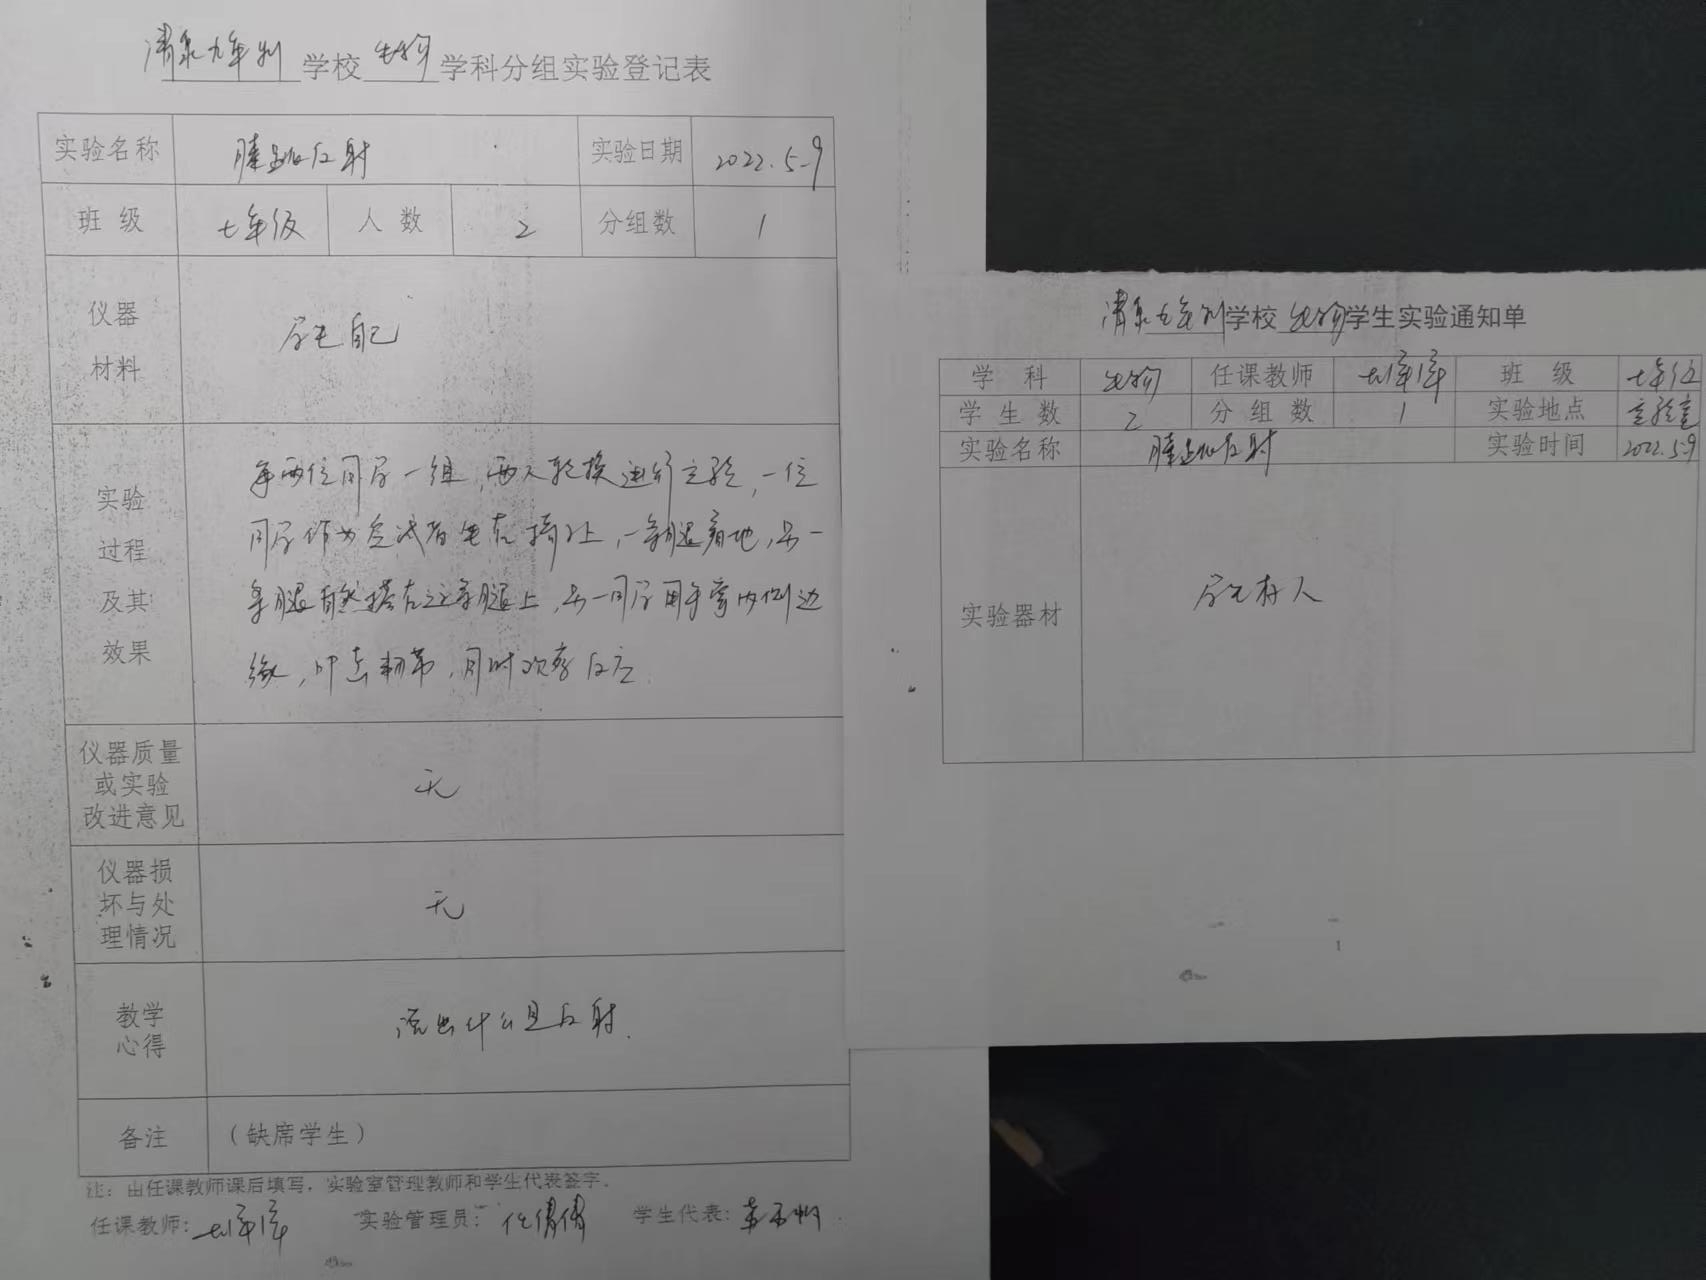 清泉九年制学校生物学科分组实验登记表
实验名称 膝跳反射 实验日期 2022.5.9
班 级 七年级 人 数 2 分组数 1
仪器
材料
学生自己
实验
过程
及其
效果
每两位同学一组,两人轮换进行实验,一位
同学作为受试者坐在椅子上,一条腿着地,另一
条腿自然搭在这条腿上,另一同学用手掌内侧边
缘,叩击韧带,同时观察反应.
仪器质量
或实验
改进意见
无
仪器损
坏与处
理情况
无
教学
心得
什么是反射.
备注 (缺席学生)
注:由任课教师课后填写,实验室管理教师和学生代表签字.
任课教师: 实验管理员: 学生代表:
清泉九年制学校生物学生实验通知单
学 科 生物 任课教师 班 级 七年级
学 生 数 2 分 组 数 1 实验地点 实验室
实验名称 膝跳反射 实验时间 2022.5.9
实验器材 学生本人
1